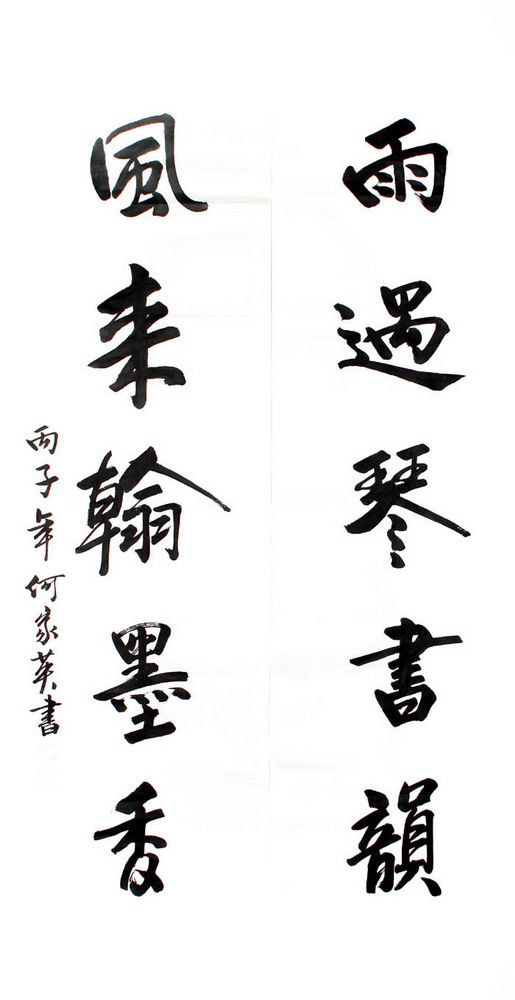 雨過琴書韻
風来翰墨香
丙子年何家英書